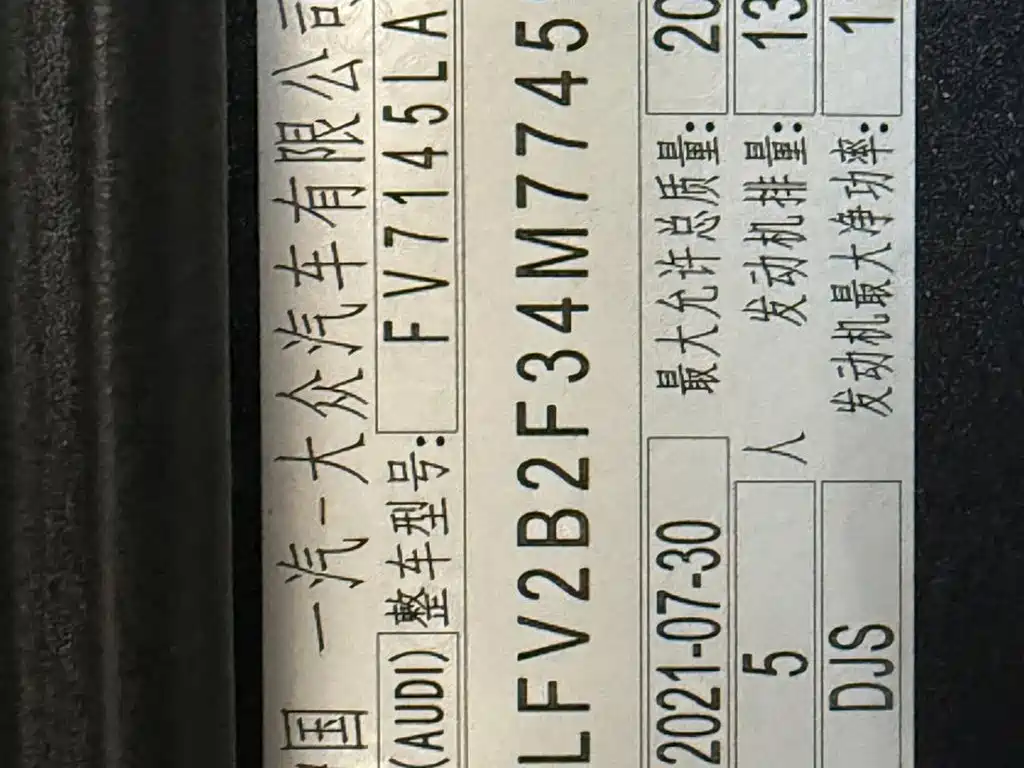 国 一汽-大众汽车有限公司
(AUDI) 整车型号: FV7145LA
LFV2B2F34M7745
2021-07-30 最大允许总质量: 20
5 人 发动机排量: 13
DJS 发动机最大净功率: 1